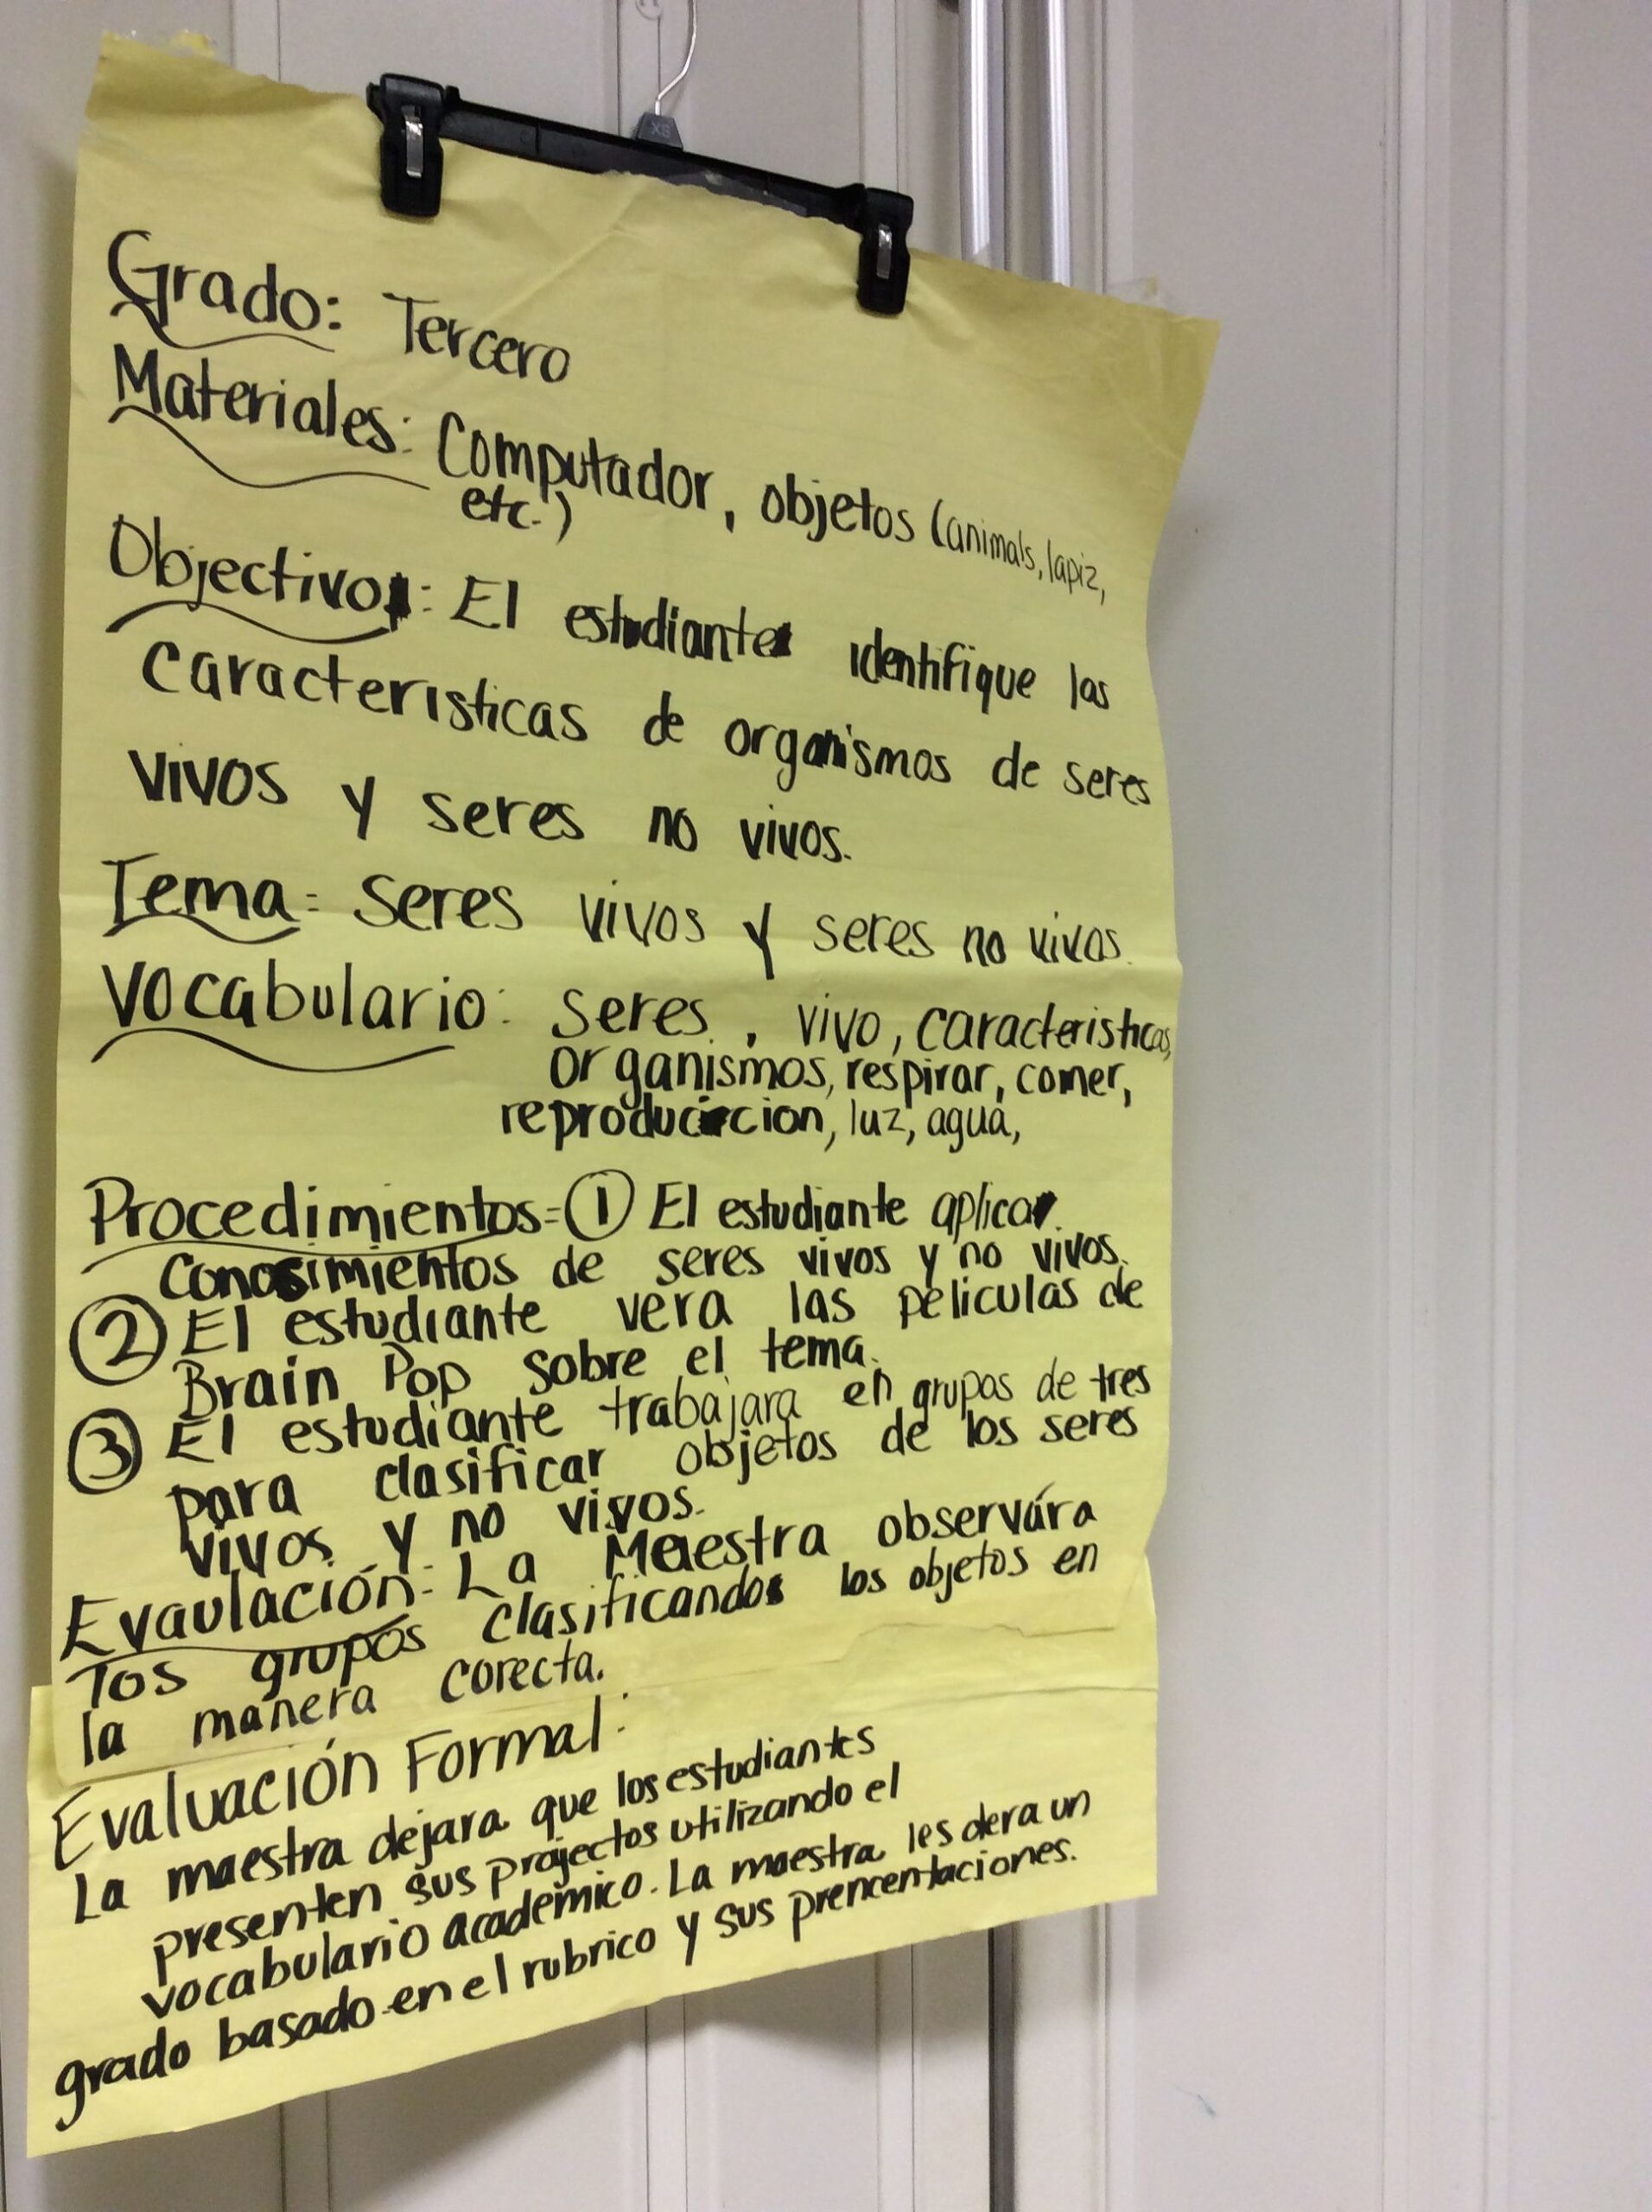 XS
Grado: Tercero
Materiales: Computador, objetos (animals, lapiz,
etc.)
Objectivo: El estudiante identifique las
caracteristicas de organismos de seres
vivos y seres no vivos.
Tema: Seres vivos y seres no vivos.
Vocabulario: seres, vivo, caracteristicas,
organismos, respirar, comer,
reproduccion, luz, agua,
Procedimientos= ① El estudiante aplicar
conosimientos de seres vivos y no vivos.
② El estudiante vera las peliculas de
Brain Pop sobre el tema.
③ El estudiante trabajara en grupos de tres
para clasificar objetos de los seres
vivos y no vivos.
Evaulación: La Maestra observára
los grupos clasificando los objetos en
la manera corecta.
Evaluación Formal:
La maestra dejara que los estudiantes
presenten sus projectos utilizando el
vocabulario academico. La maestra les dera un
grado basado en el rubrico y sus prencentaciones.